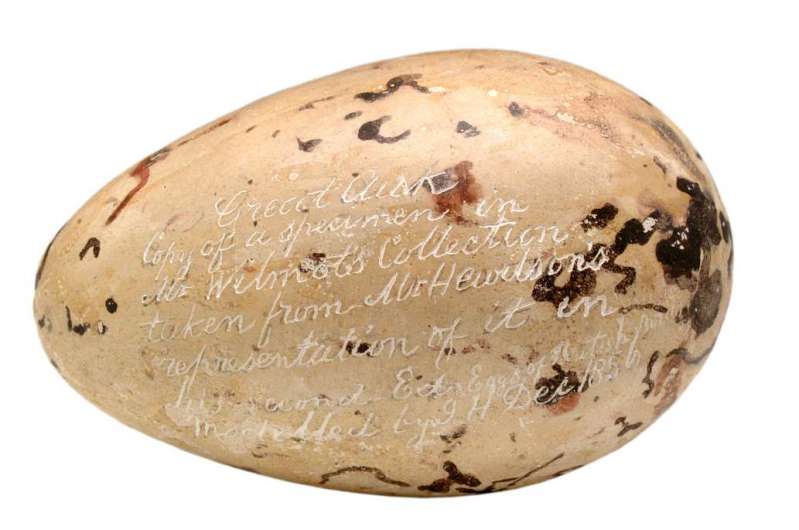 Great Auk
Copy of a specimen in
Mr Wilmot's Collection
taken from Mr Hewitson's
representation of it in
his second Edn Eggs of British
Modelled by J H Dec 185